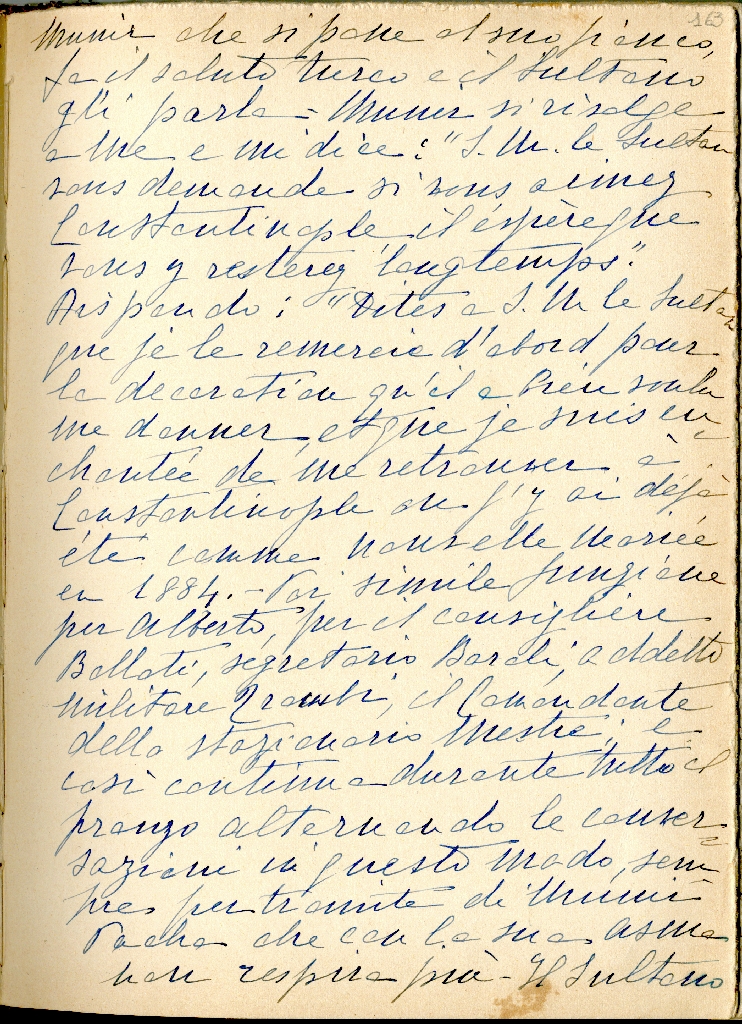 163
Munir che si pone al suo fianco,
fa il saluto turco e il Sultano
gli parla = Munir si rivolge
a me e mi dice: "S. M. le Sultan
vous demande si vous aimez
Constantinople il éspère que
vous y resterez longtemps".
Rispondo: "Dites a S. M. le Sultan
que je le remercie d'abord pour
la decoration qu'il a bien voulu
me donner, et que je suis en-
chantée de me retrouver à
Constantinople ou j'y ai déjà
été comme nouvelle mariée
en 1884. - Poi simile funzione
per Alberto, per il consigliere
Bollati, segretario Baroli, addetto
militare Trombi, il Comandante
dello stazionario Mestre; e
così continua durante tutto il
pranzo alternando le conver=
sazioni in questo modo, sem
pre per tramite di Munir
Pacha che con la sua asma
non respira più - Il Sultano